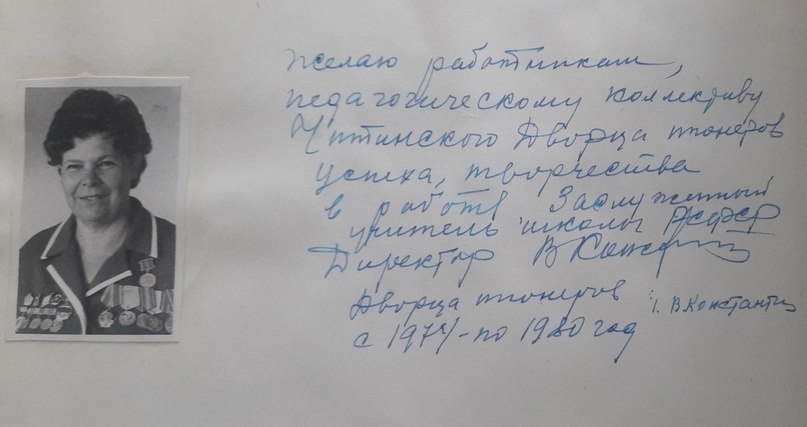 Желаю работникам,
педагогическому коллективу
Читинского Дворца пионеров
успеха, творчества
в работе Заслуженный
учитель школы РСФСР
Директор
Дворца пионеров
с 1974 - по 1980 год